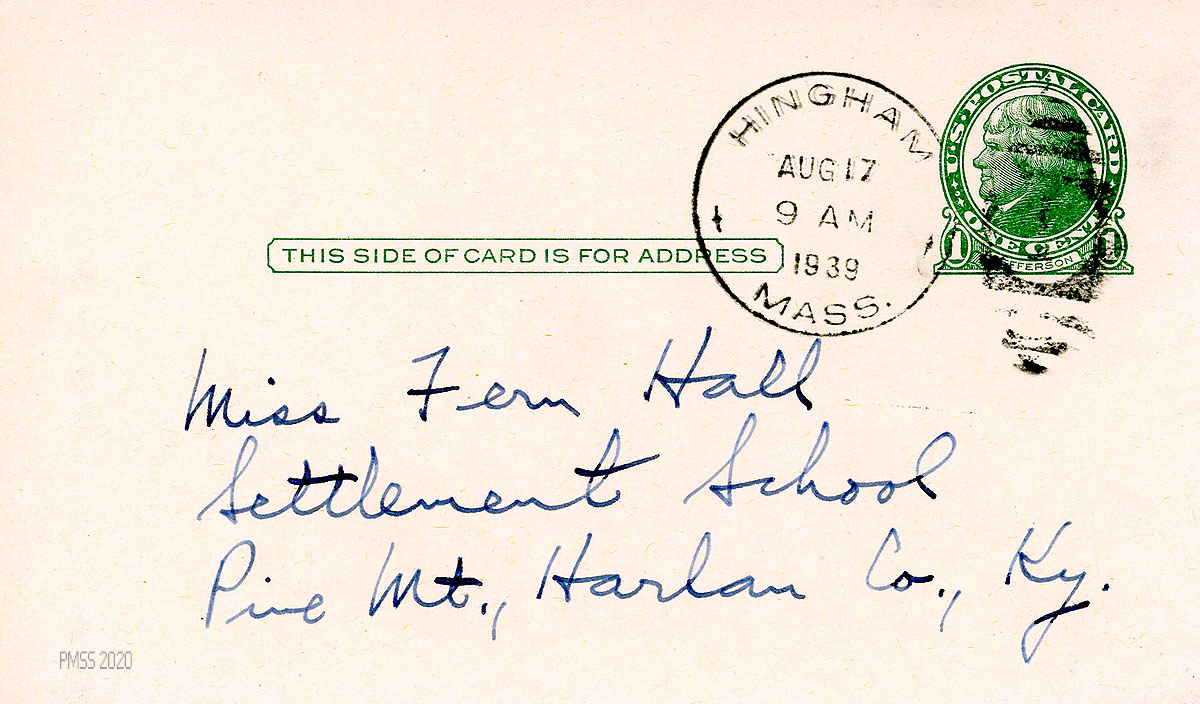 U.S. POSTAL CARD
ONE CENT
1 1
JEFFERSON
HINGHAM
AUG 17
9 AM
1939
MASS.
THIS SIDE OF CARD IS FOR ADDRESS
Miss Fern Hall
Settlement School
Pine Mt., Harlan Co., Ky.
PMSS 2020